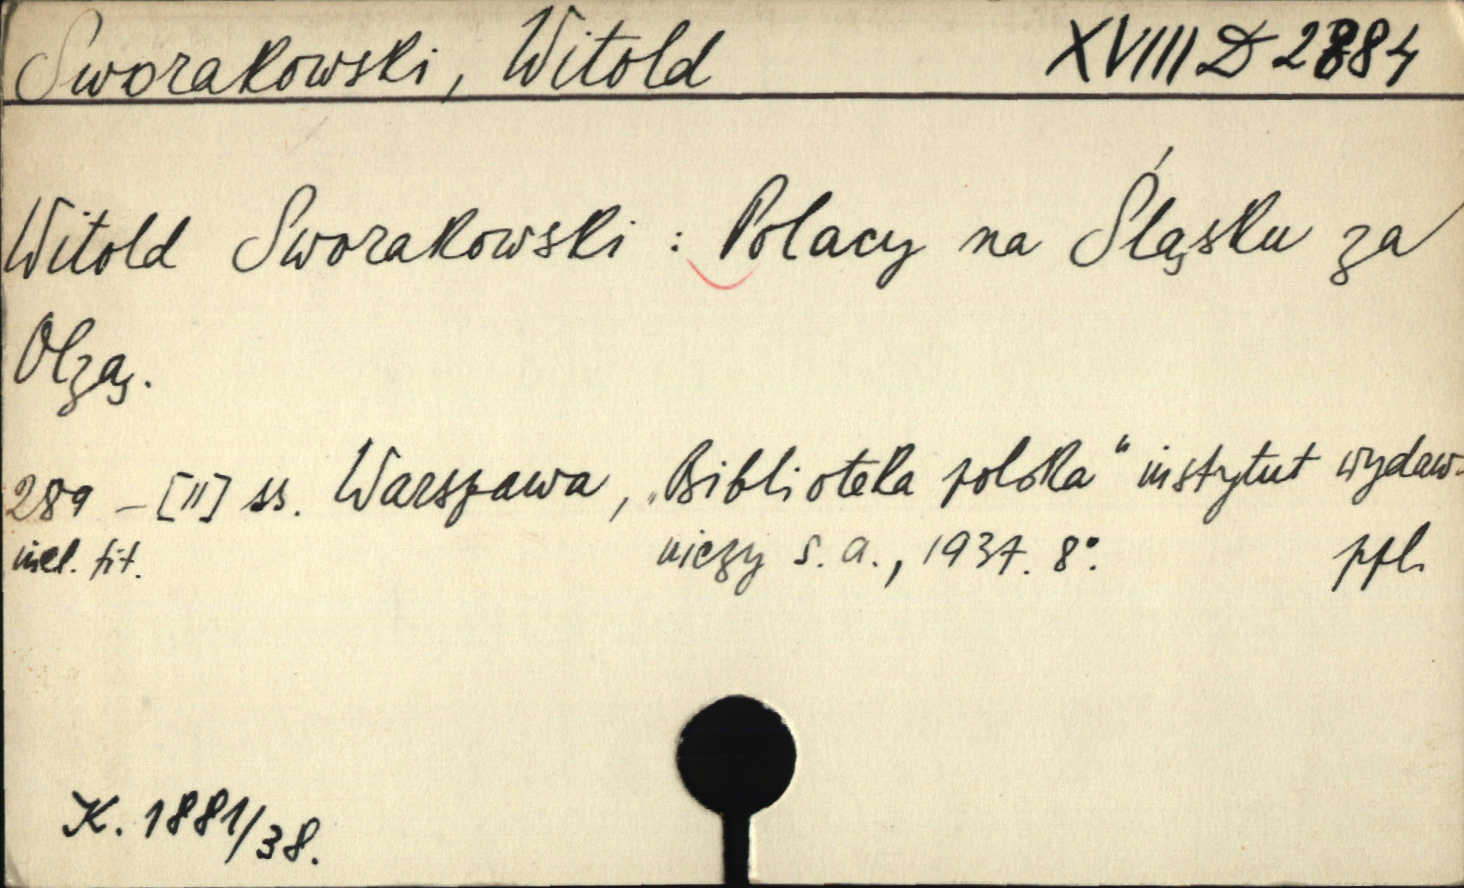 Sworakowski, Witold XVIII D 2884
Witold Sworakowski : Polacy na Śląsku za
Olzą.
289 – [II] ss. Warszawa, „Biblioteka polska“ instytut wydaw-
incl. tit. niczy s. a., 1937. 8°. ppl.
K. 1881/38.